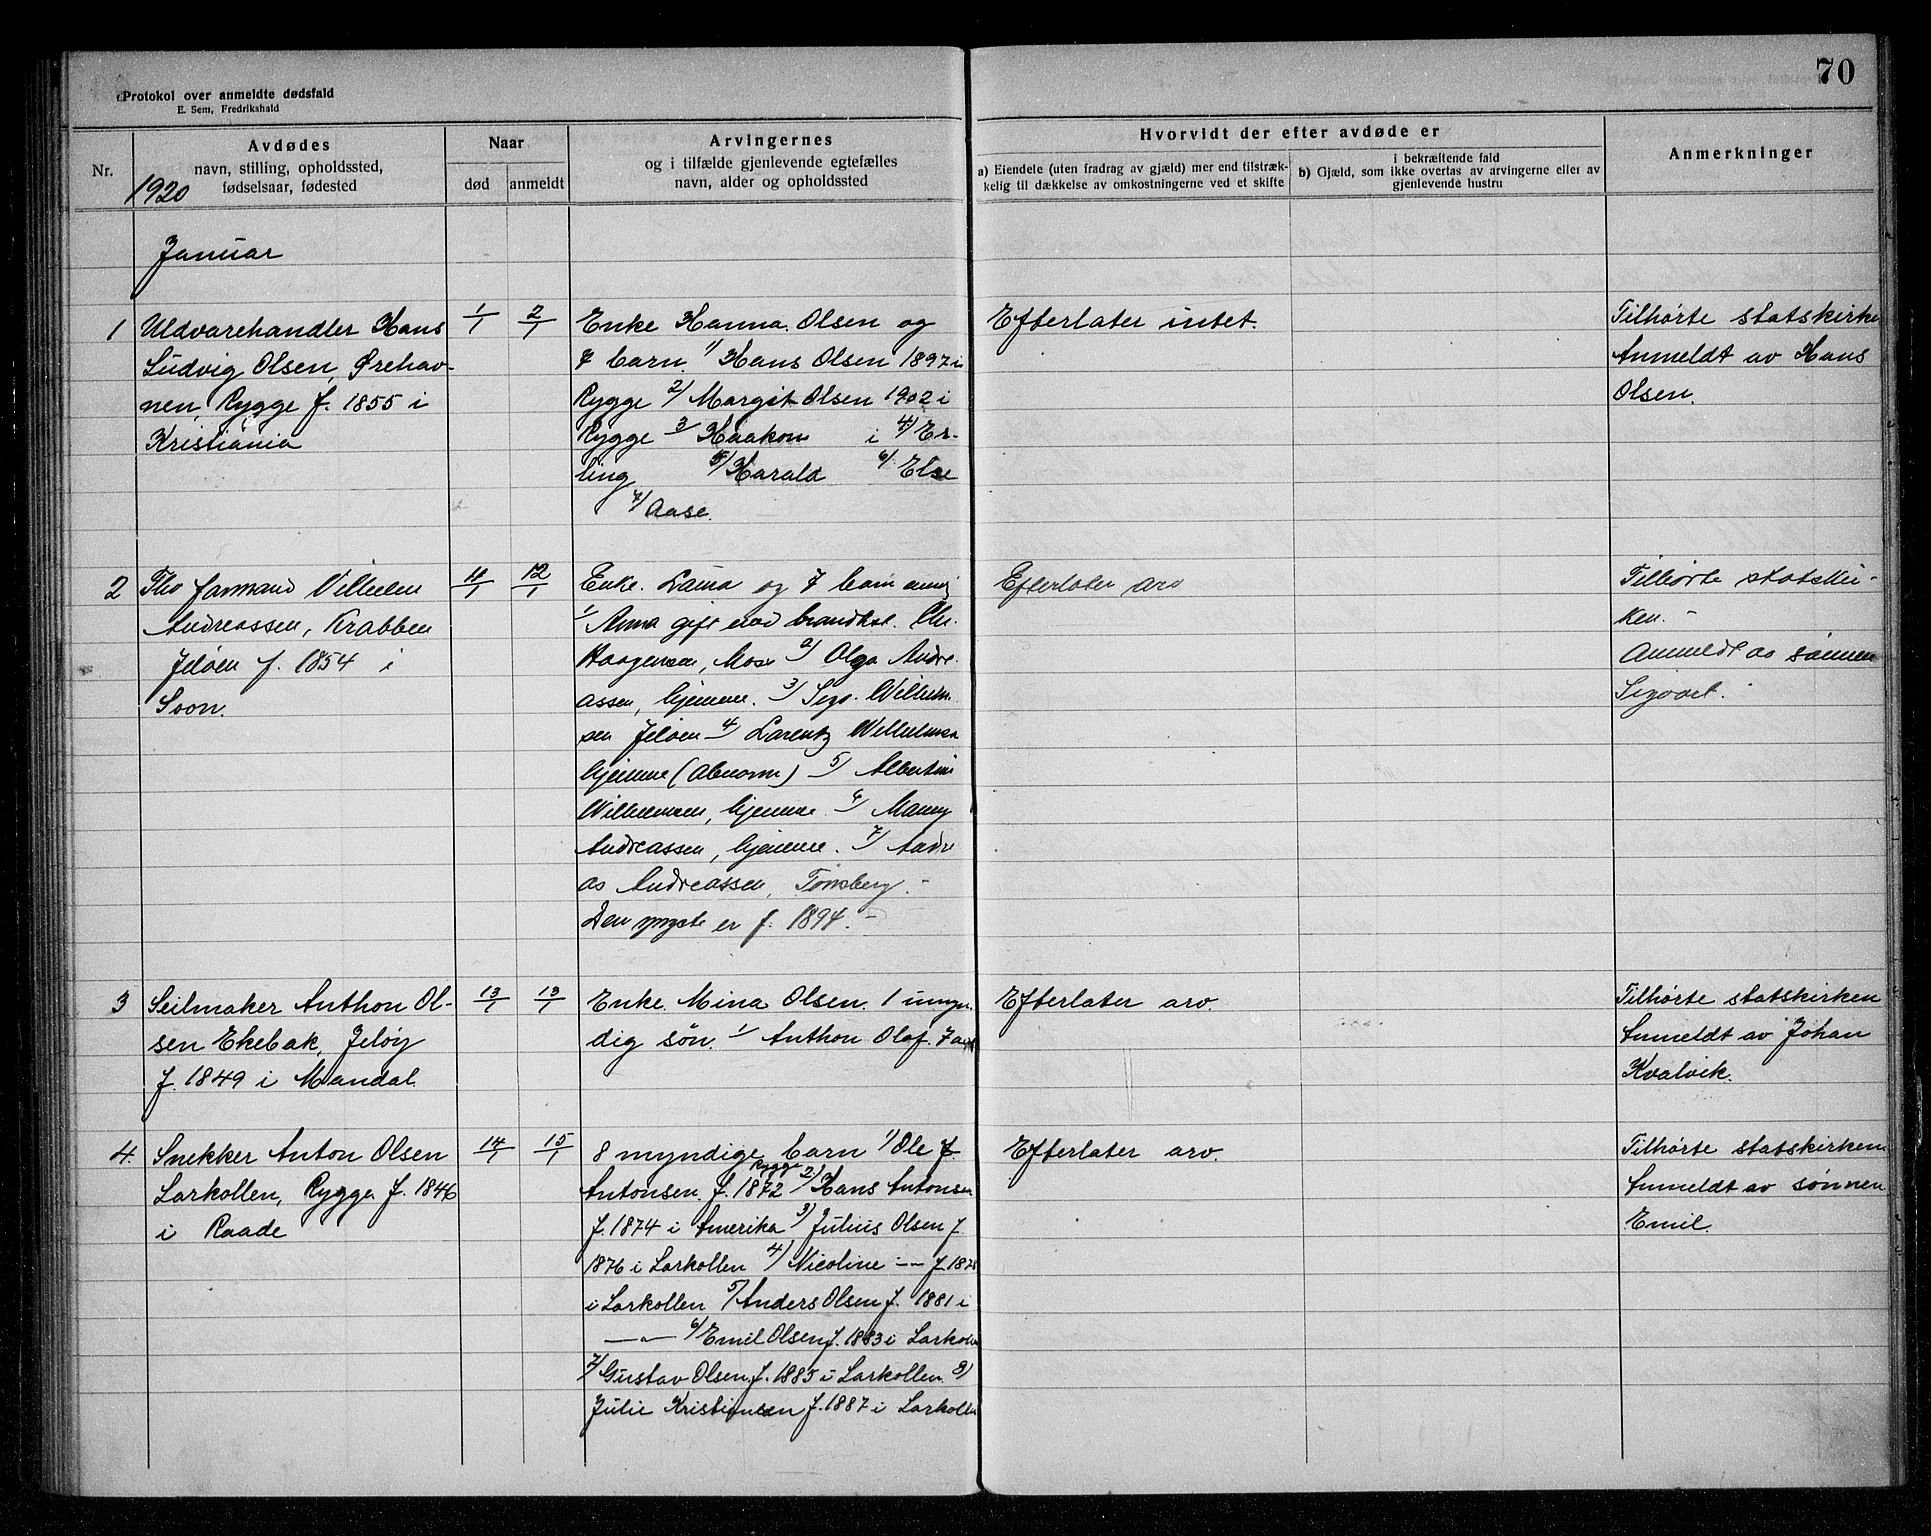 70
Protokol over anmeldte dødsfald
E. Sem, Fredrikshald
Nr.
Avdødes
navn, stilling, opholdssted,
fødselsaar, fødested
1920
Naar
død
anmeldt
Arvingernes
og i tilfælde gjenlevende egtefælles
navn, alder og opholdssted
Hvorvidt der efter avdøde er
a) Eiendele (uten fradrag av gjæld) mer end tilstræk-
kelig til dækkelse av omkostningerne ved et skifte
i bekræftende fald
b) Gjæld, som ikke overtas av arvingerne eller av
gjenlevende hustru
Anmerkninger
Januar
1
Uldvarehandler Hans
Ludvig Olsen, Ørehav-
nen, Rygge f. 1855 i
Kristiania
1/1
2/1
Enke Hanna Olsen og
7 barn. 1/ Hans Olsen 1897 i
Rygge 2/ Margit Olsen 1902 i
Rygge 3/ Haakon i 4/ Er-
ling 5/ Harald 6/ Else
7/ Aase.
Efterlater intet.
Tilhørte statskirke
Anmeldt av Hans
Olsen.
2
Andreassen, Krabben
Jeløen f. 1854 i
Soon.
11/1
12/1
Enke. Laura og 7 barn
1/ Anna gift med
Haagensen, Moss 2/ Olga Andre-
assen, hjemme. 3/ Sigv. Wilhelm-
sen Jeløen 4/ Lorentz Wilhelmsen
hjemme (Abnorm) 5/ Albertine
Wilhelmsen, hjemme. 6/
Andreassen, hjemme. 7/ Andre
as Andreassen, Tønsberg. -
Den yngste er f. 1894. -
Efterlater arv
Tilhørte statskir-
ken. -
Anmeldt av sønnen
3
Seilmaker Anthon Ol-
sen Ekebak, Jeløy
f. 1849 i Mandal.
13/1
13/1
Enke. Mina Olsen. 1 umyn-
dig søn. 1/ Anthon Olaf. 7 aar
Efterlater arv.
Tilhørte statskirken
Anmeldt av Johan
Kvalvik.
4.
Snekker Anton Olsen
Larkollen, Rygge f. 1846
i Raade
14/1
15/1
8 myndige barn 1/ Ole J.
Antonsen f. 1872 Rygge 2/ Hans Antonsen
f. 1874 i Amerika 3/ Julius Olsen f
1876 i Larkollen 4/ Nicoline -"- f. 1878
i Larkollen 5/ Anders Olsen f. 1881 i
-"- 6/ Emil Olsen f. 1883 i Larkollen
7/ Gustav Olsen f. 1885 i Larkollen. 8/
Julie Kristiansen f. 1887 i Larkollen
Efterlater arv.
Tilhørte statskirken.
Anmeldt av sønnen
Emil.